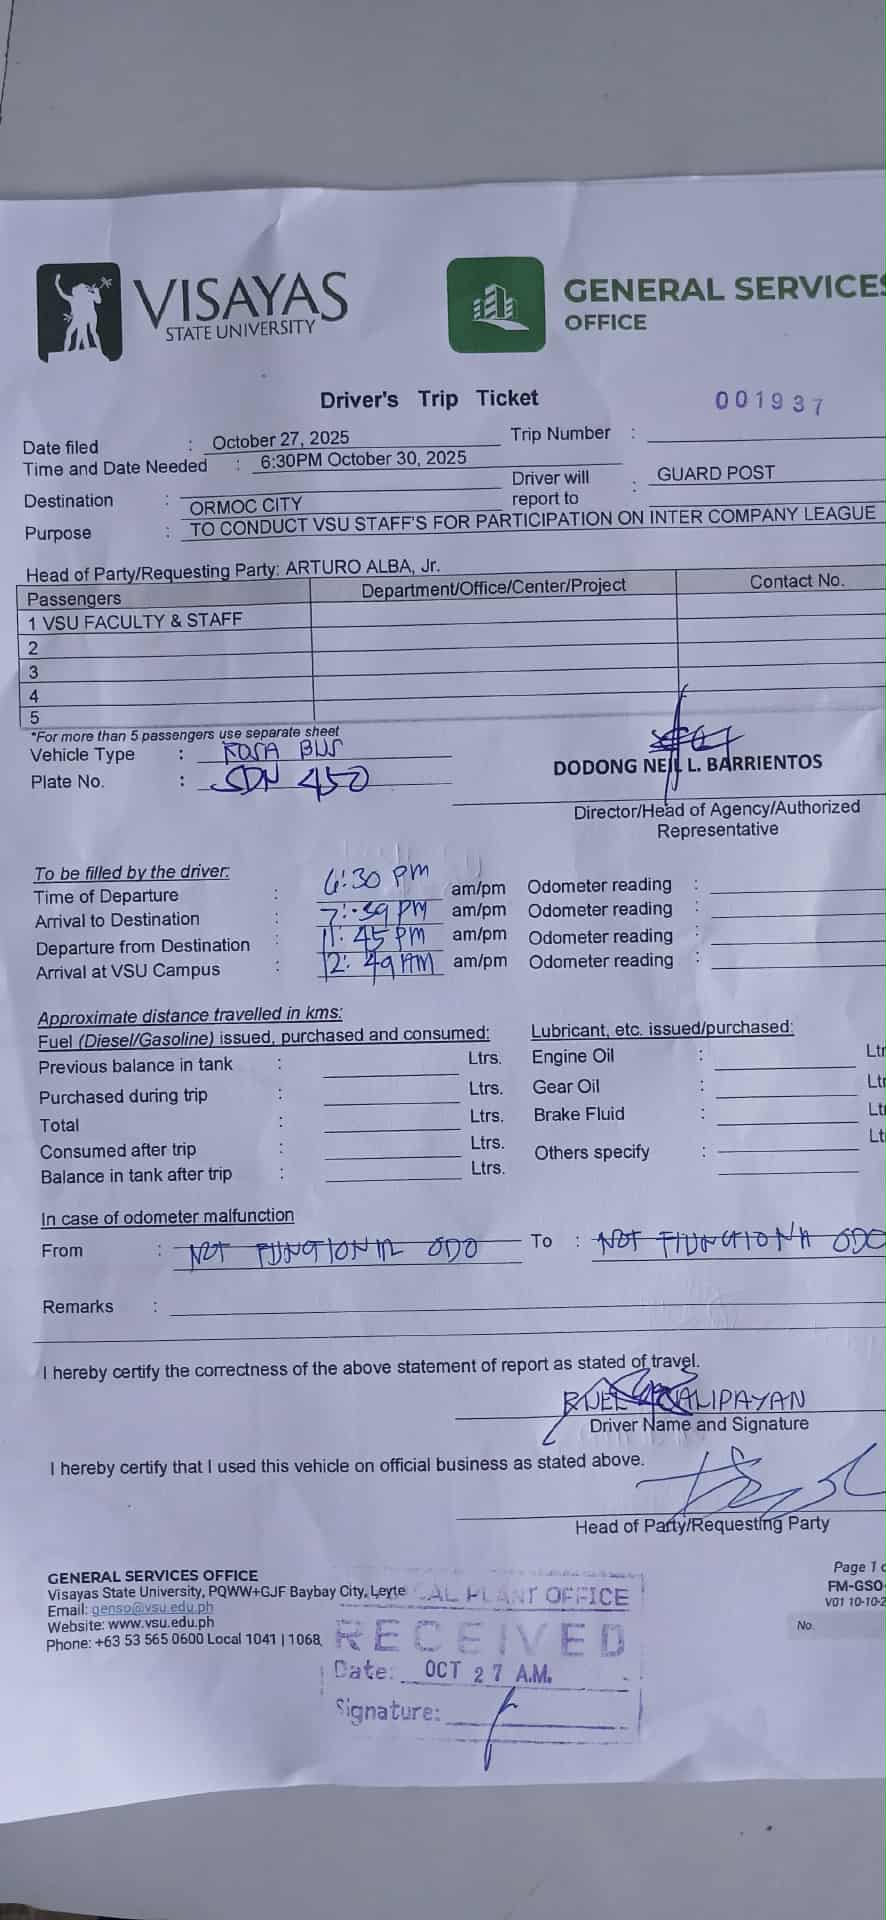 VISAYAS
STATE UNIVERSITY
GENERAL SERVICES
OFFICE
Driver's Trip Ticket
001937
Date filed : October 27, 2025 Trip Number :
Time and Date Needed : 6:30PM October 30, 2025
Destination : ORMOC CITY Driver will report to : GUARD POST
Purpose : TO CONDUCT VSU STAFF'S FOR PARTICIPATION ON INTER COMPANY LEAGUE
Head of Party/Requesting Party: ARTURO ALBA, Jr.
Passengers Department/Office/Center/Project Contact No.
1 VSU FACULTY & STAFF
2
3
4
5
*For more than 5 passengers use separate sheet
Vehicle Type : ROSA BUS
Plate No. : SDN 450
DODONG NEIL L. BARRIENTOS
Director/Head of Agency/Authorized
Representative
To be filled by the driver:
Time of Departure : 6:30 PM am/pm Odometer reading :
Arrival to Destination : 7:39 PM am/pm Odometer reading :
Departure from Destination : 11:45 PM am/pm Odometer reading :
Arrival at VSU Campus : 12:49 AM am/pm Odometer reading :
Approximate distance travelled in kms:
Fuel (Diesel/Gasoline) issued, purchased and consumed: Lubricant, etc. issued/purchased:
Previous balance in tank : Ltrs. Engine Oil : Ltr
Purchased during trip : Ltrs. Gear Oil : Ltr
Total : Ltrs. Brake Fluid : Ltr
Consumed after trip : Ltrs. Others specify : Lt
Balance in tank after trip : Ltrs.
In case of odometer malfunction
From : NOT ODO To : NOT ODO
Remarks :
I hereby certify the correctness of the above statement of report as stated of travel.
Driver Name and Signature
I hereby certify that I used this vehicle on official business as stated above.
Head of Party/Requesting Party
GENERAL SERVICES OFFICE
Visayas State University, PQWW+GJF Baybay City, Leyte
Email: genso@vsu.edu.ph
Website: www.vsu.edu.ph
Phone: +63 53 565 0600 Local 1041 | 1068,
CAL PLANT OFFICE
RECEIVED
Date: OCT 27 A.M.
Signature:
Page 1 o
FM-GSO-
V01 10-10-2
No.